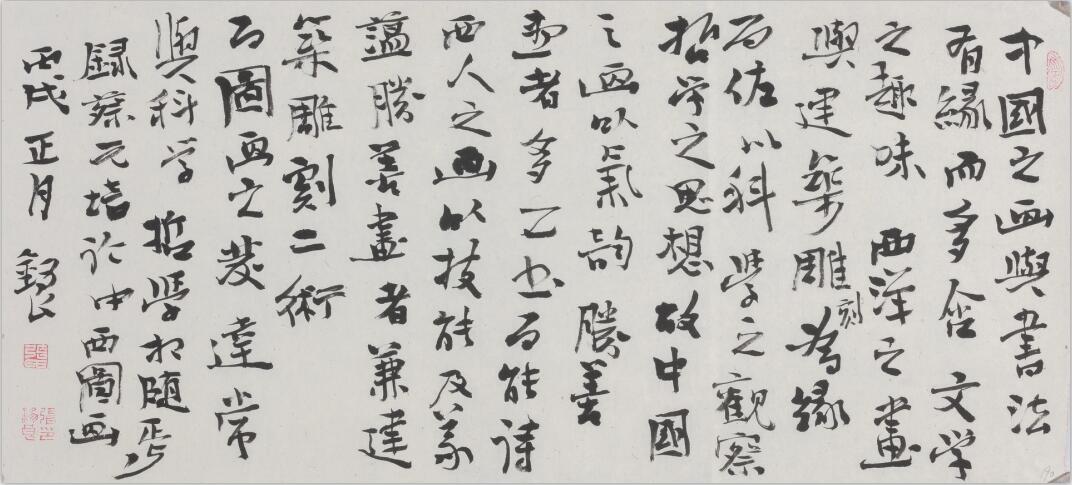 中國之画與書法
有緣而多含文学
之趣味西洋之畫
與建築雕刻為緣
而佐以科學之觀察
哲学之思想故中國
之画以氣韵勝善
画者多工书而能诗
西人之画以技能及義
藴勝善畫者兼建
築雕刻二術
而圖画之發達常
與科学哲學相随步
録蔡元培论中西圖画
丙戌正月錫良